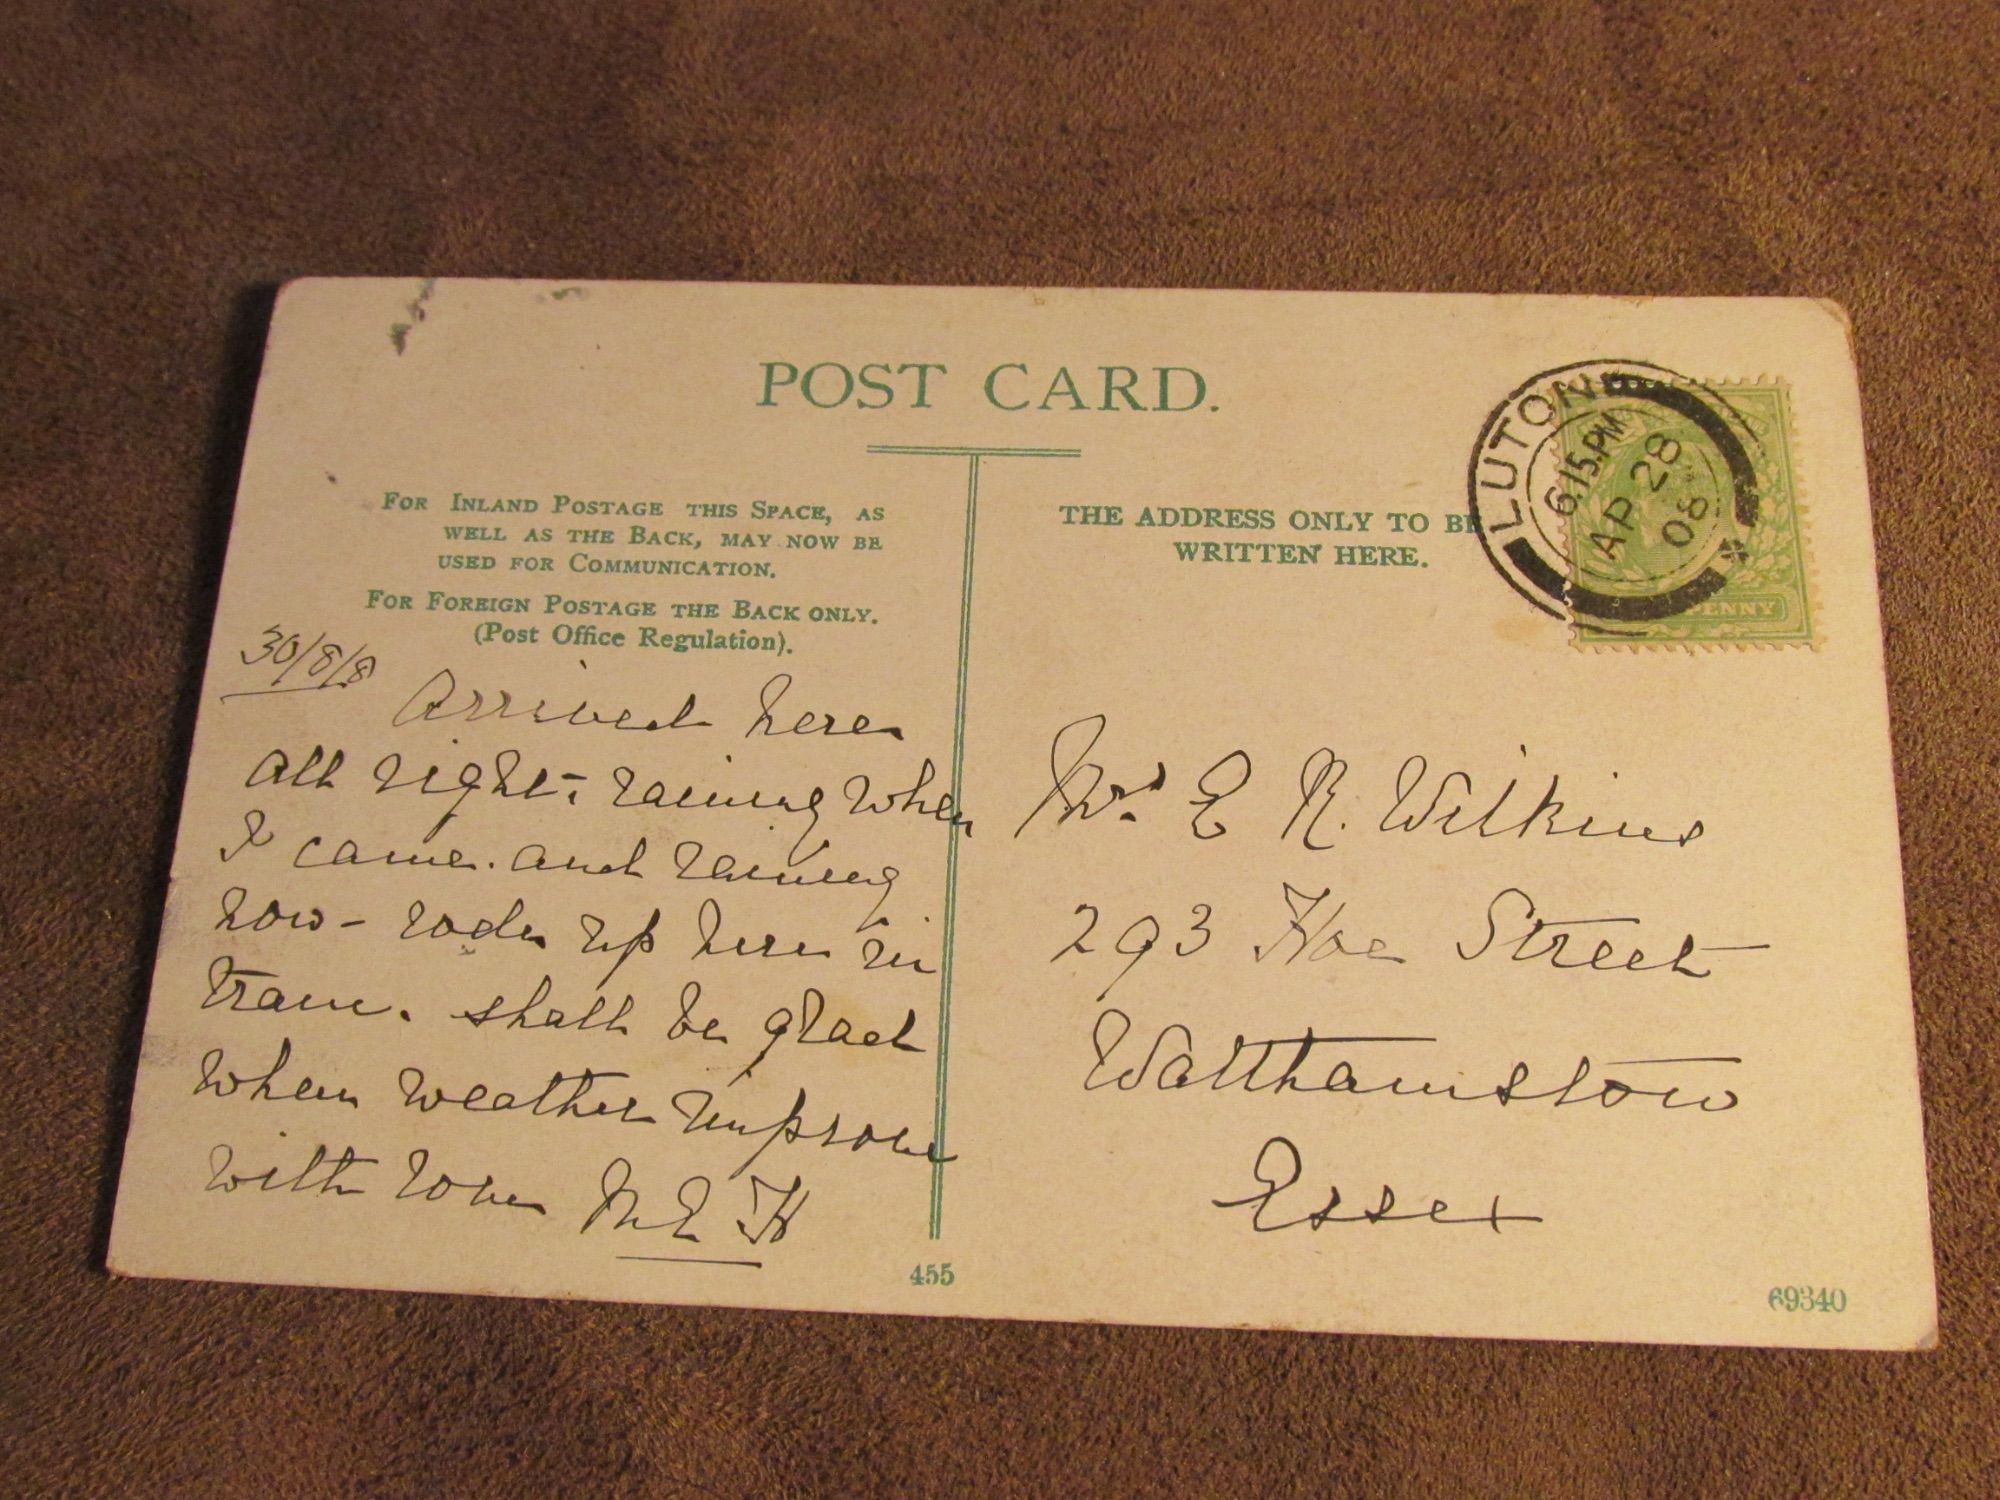 POST CARD.
FOR INLAND POSTAGE THIS SPACE, AS
WELL AS THE BACK, MAY NOW BE
USED FOR COMMUNICATION.
FOR FOREIGN POSTAGE THE BACK ONLY.
(Post Office Regulation).
30/8/8
Arrived here
all right - raining when
I came. and raining
now - rode up here in
tram. shall be glad
when weather improve
with love M E H
455
THE ADDRESS ONLY TO BE
WRITTEN HERE.
LUTON
6.15.PM
AP 28
08
PENNY
Mrs E R. Wilkins
293 Hoe Street
Walthamstow
Essex
69340